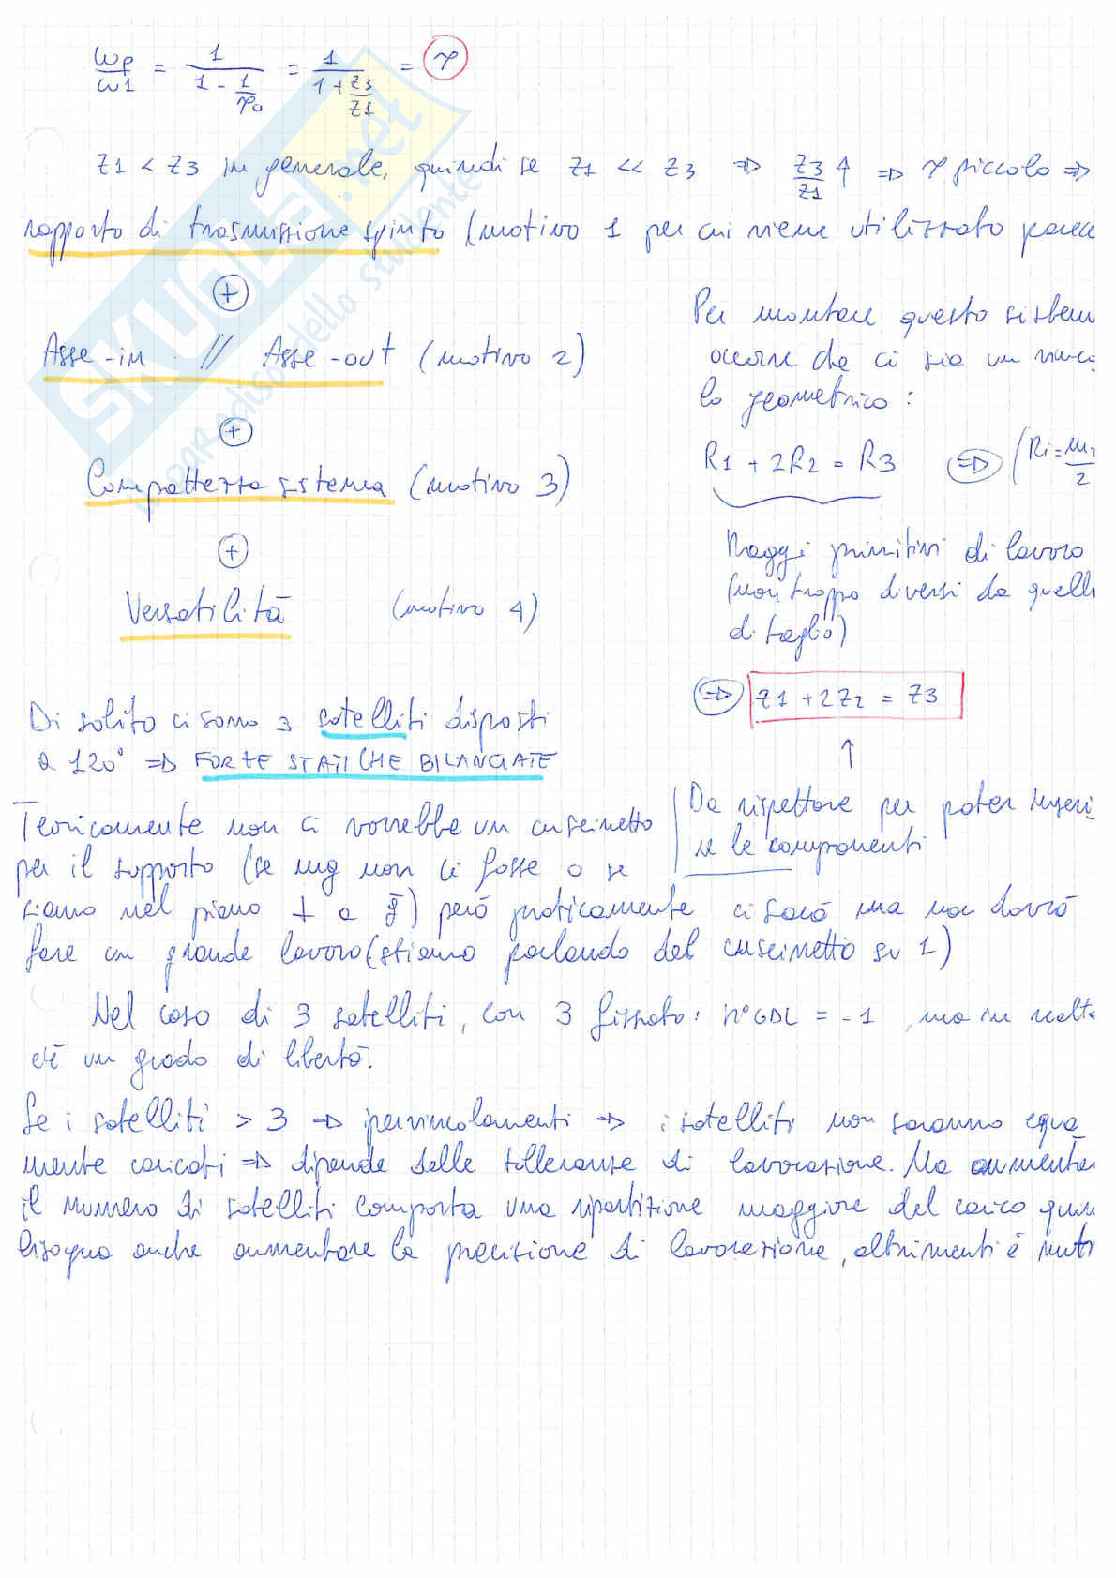 ωp/ω1 = 1/(1 - 1/τ0) = 1/(1 + z3/z1) = τ
z1 < z3 in generale, quindi se z1 << z3 ⇒ z3/z1 ↑ ⇒ τ piccolo ⇒
rapporto di trasmissione spinto (motivo 1 per cui viene utilizzato parec
+
Asse-in // Asse-out (motivo 2)
+
Compattezza sistema (motivo 3)
+
Versatilità (motivo 4)
Per montare questo sistem
occorre che ci sia un vinco
lo geometrico:
R1 + 2R2 = R3 ⇒ (Ri = m
2
Raggi primitivi di lavoro
(non troppo diversi da quelli
di taglio)
⇒ z1 + 2z2 = z3
↑
Da rispettare per poter inseri
re le componenti
Di solito ci sono 3 satelliti disposti
a 120° ⇒ FORZE STATICHE BILANCIATE
Teoricamente non ci vorrebbe un cuscinetto
per il supporto (se mg non ci fosse o se
siamo nel piano ⊥ a g) però praticamente ci sarà ma non dovrà
fare un grande lavoro (stiamo parlando del cuscinetto su 1)
Nel caso di 3 satelliti, con 3 fissato: n°GDL = -1, ma in realtà
c'è un grado di libertà.
Se i satelliti > 3 ⇒ ipervincolamenti ⇒ i satelliti non saranno equa
mente caricati ⇒ dipende dalle tolleranze di lavorazione. Ma aumentar
il numero di satelliti comporta una ripartizione maggiore del carico quin
bisogna anche aumentare la precisione di lavorazione, altrimenti è inuti
SKUOLA.net
IL PARADISO dello studente